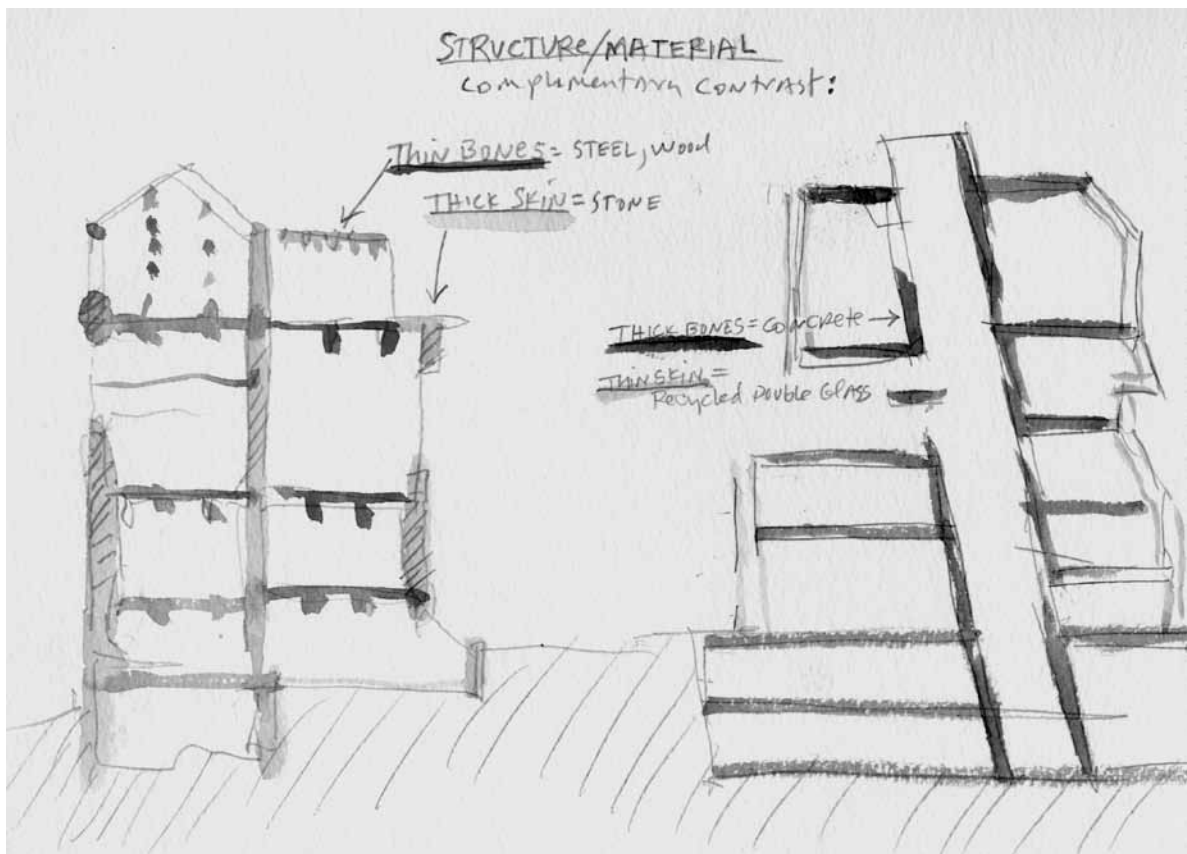 STRUCTURE/MATERIAL
complementary contrast:
THIN BONES = STEEL, Wood
THICK SKIN = STONE
THICK BONES = CONCRETE →
THIN SKIN =
Recycled Double GLASS